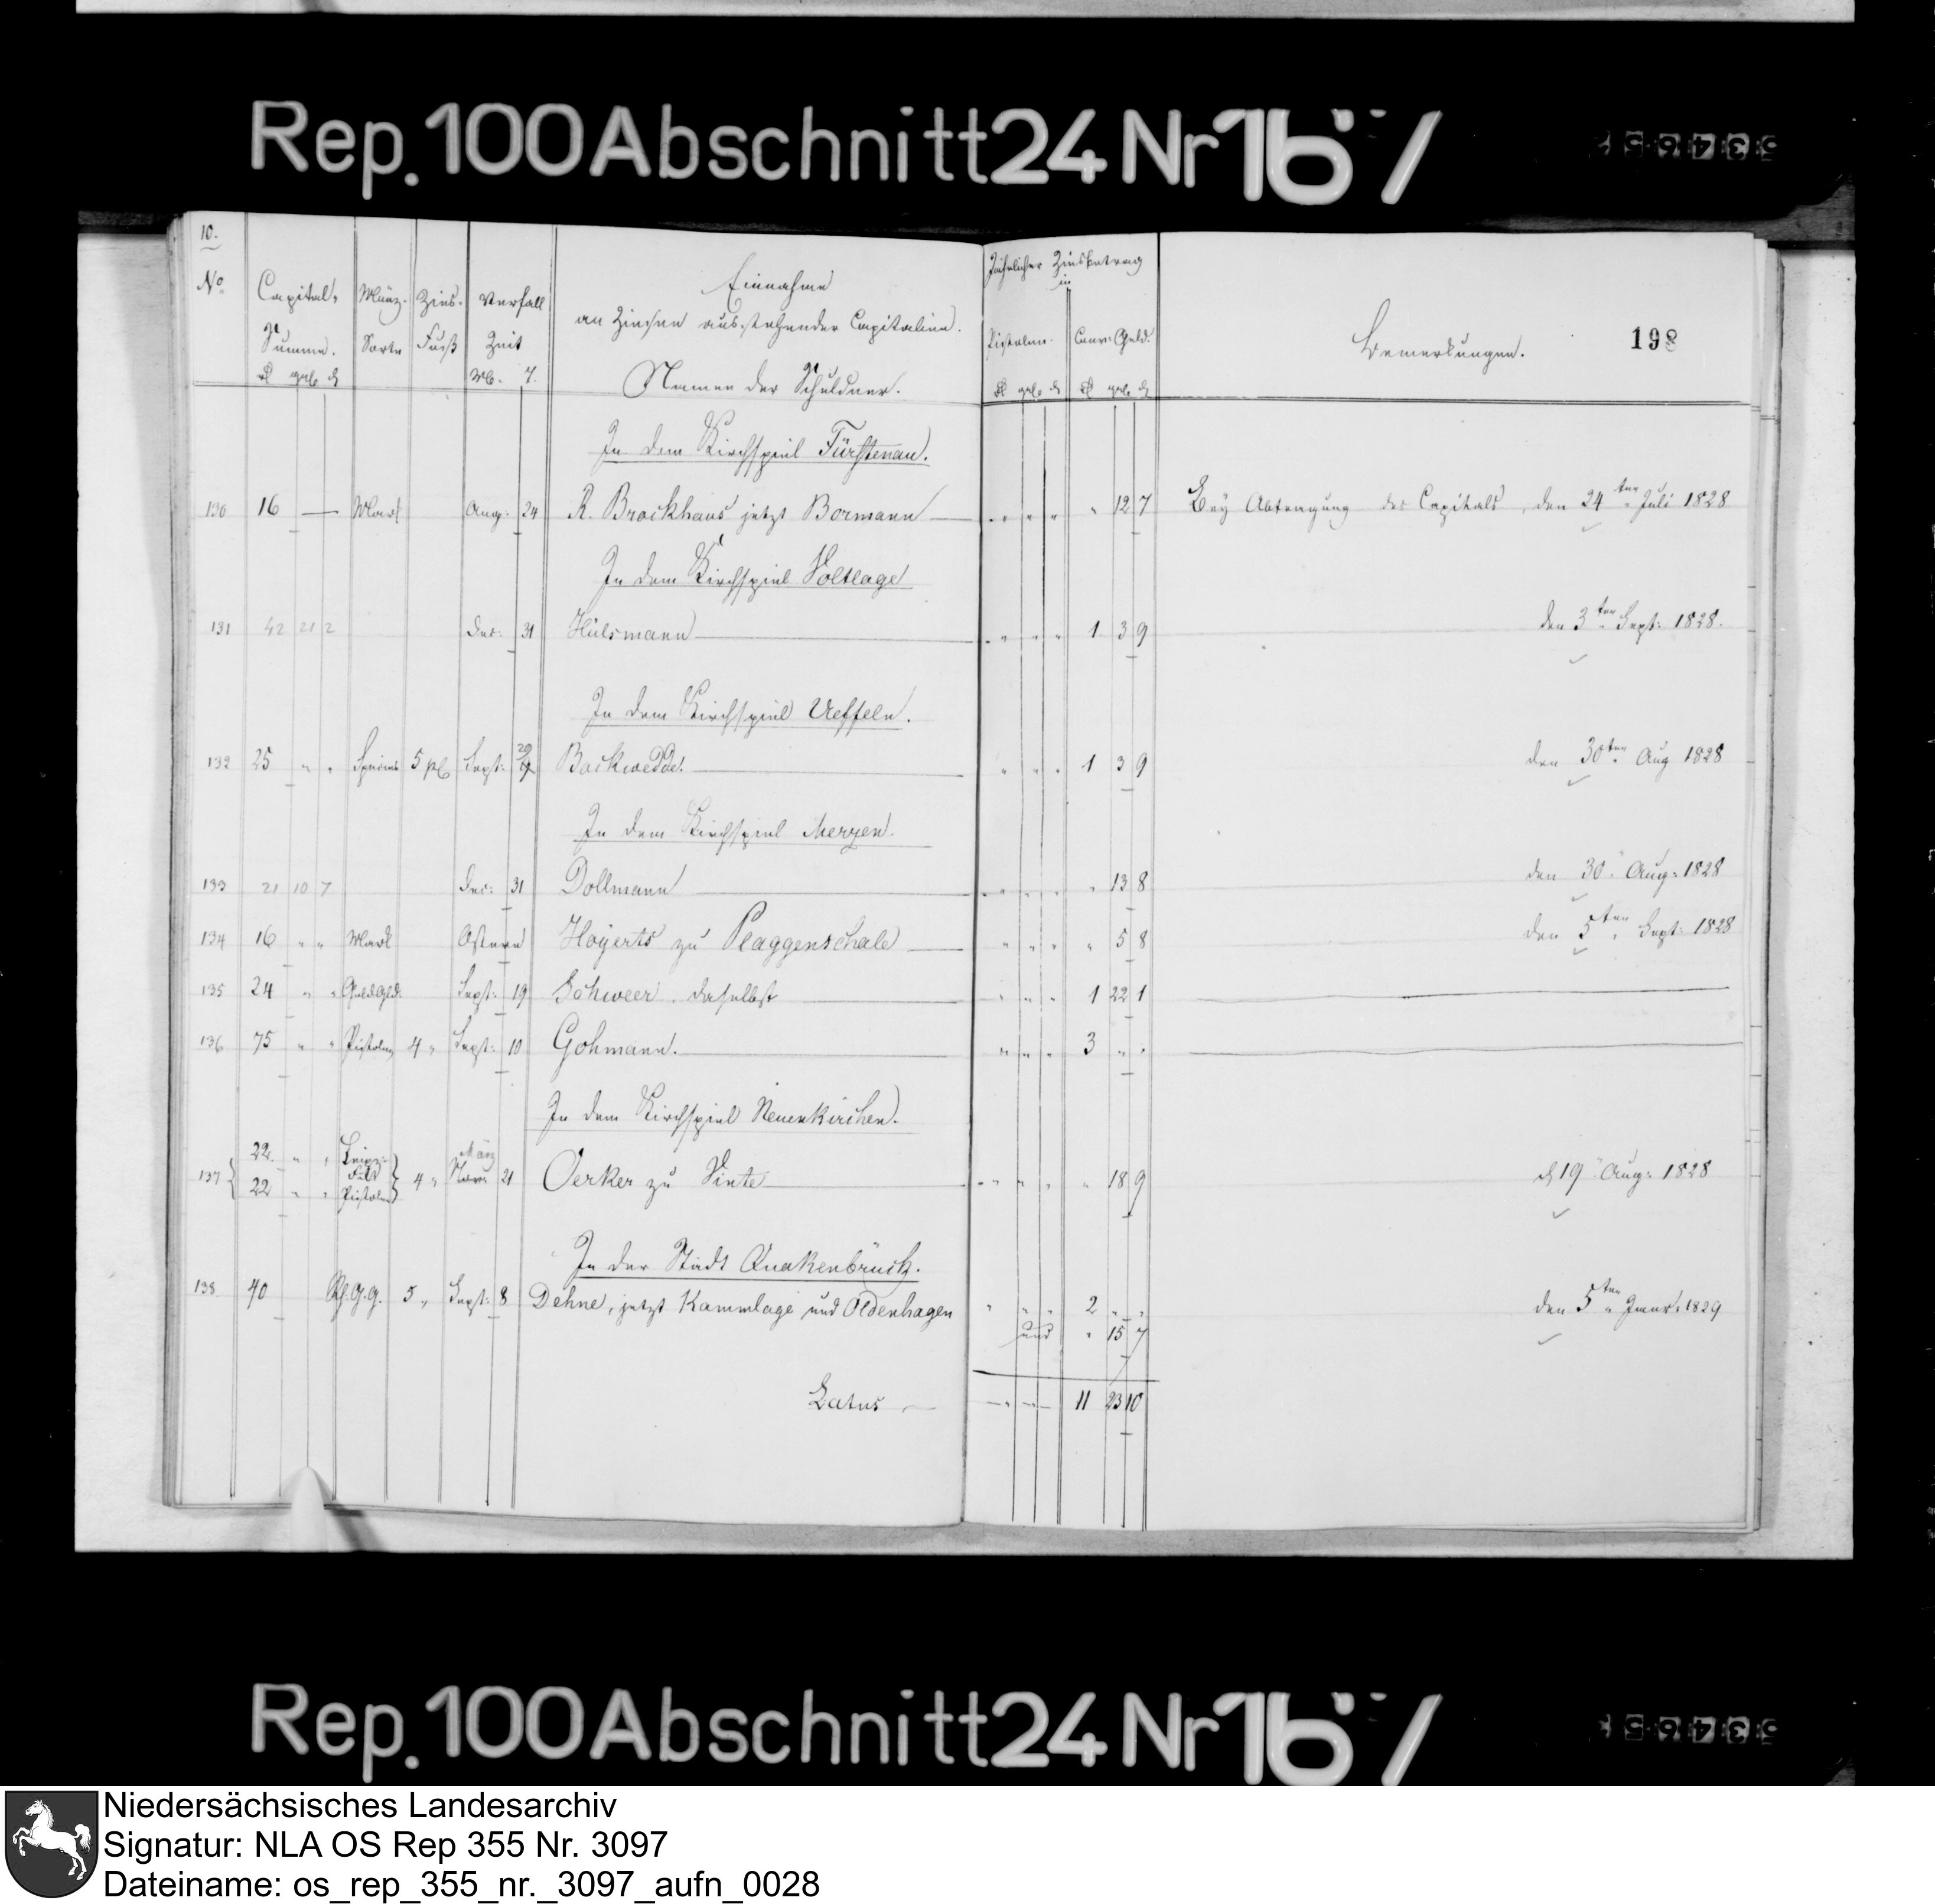 Rep. 100 Abschnitt 24 Nr 167
53465
10.
198
No Capital- Münz- Zins- Verfall Einnahme Jährlicher Zinsbetrag
Summe. Sorte Fuß Zeit an Zinsen ausstehender Capitalien. in
Pistolen. Conv: Geld. Bemerkungen.
Namen der Schuldner.
In dem Kirchspiel Fürstenau.
130 16 — Mark Aug: 24 R. Brockhaus jetzt Bormann " " " " 12 7 Bey Abtragung des Capitals, den 24ten Juli 1828
In dem Kirchspiel Voltlage
131 42 21 2 Dec: 31 Hülsmann " " " 1 3 9 den 3ten Sept: 1828.
In dem Kirchspiel Ueffeln.
132 25 " " Species 5 Sept: 29 Backwedde. " " " 1 3 9 den 30ten Aug 1828
In dem Kirchspiel Merzen.
133 21 10 7 Dec: 31 Dollmann " " " " 13 8 den 30" Aug: 1828
134 16 " " Mark Ostern Hoyerts zu Plaggenschale " " " " 5 8 den 5ten Sept: 1828
135 24 " " Sept: 19 Schweer. daselbst " " " 1 22 1
136 75 " " Pistolen 4 " Sept: 10 Gohmann. " " " 3 " "
In dem Kirchspiel Neuenkirchen.
137 22 " " März
22 " " Pistolen 4 " 21 Oerker zu Vinte " " " " 18 9 d 19" Aug: 1828
In der Stadt Quakenbrück.
138 40 5 " Sept: 8 Dehne, jetzt Kammlage und Oldenhagen " " " 2 " " den 5ten Januar: 1829
und " 15 7
Latus — 11 23 10
Rep. 100 Abschnitt 24 Nr 167
53465
Niedersächsisches Landesarchiv
Signatur: NLA OS Rep 355 Nr. 3097
Dateiname: os_rep_355_nr._3097_aufn_0028